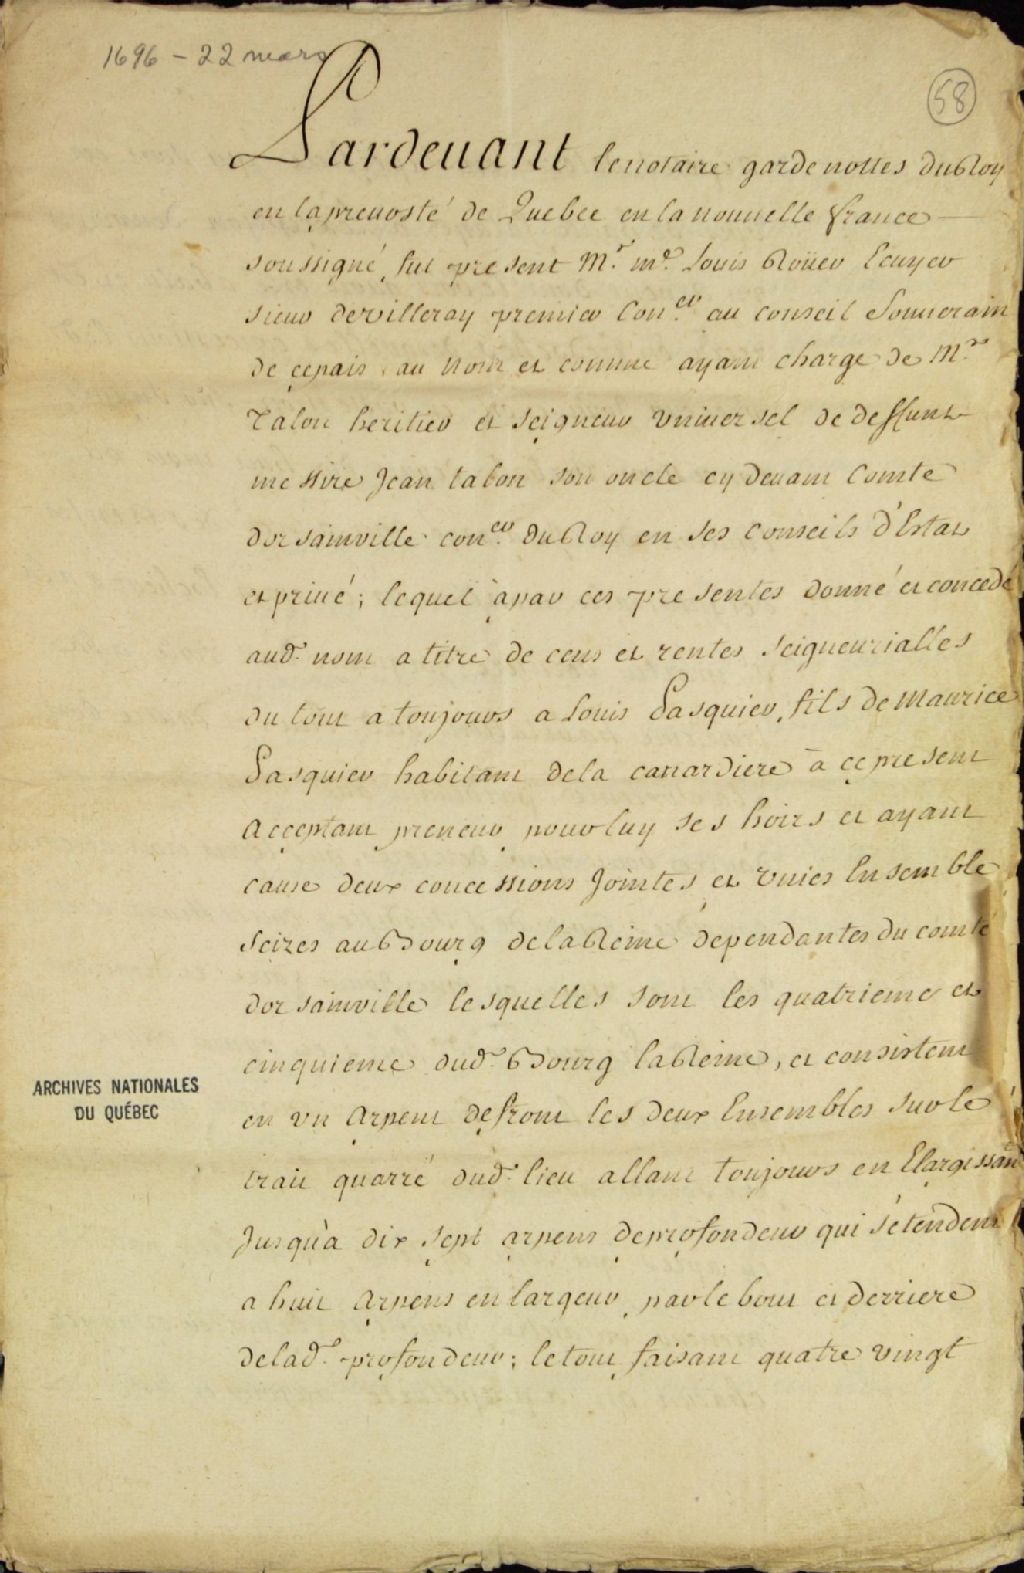 1696 - 22 mars
58
Pardeuant le notaire garde nottes du Roy
en la preuosté de Quebec en la nouuelle france
soussigné, fut present Mr. me. Louis Roüer Ecuyer
sieur devilleray premier Coner. au conseil Souuerain
de cepais au Nom et comme ayant charge de Mr.
Talon heritier et seigneur vniuersel de deffunt
messire Jean talon son oncle cy deuant Comte
dorsainville coner. du Roy en ses Conseils d'Estat
et priué; lequel à par ces presentes donné et concedé
aud. nom a titre de cens et rentes seigneurialles
du tout a toujours a Louis Pasquier, fils de Maurice
Pasquier habitant dela canardiere à ce present
Acceptant preneur pour luy ses hoirs et ayant
cause deux concessions Jointes et vnies Ensemble
seizes au Bourg de la Reine dependantes du comté
dorsainville lesquelles sont les quatrieme et
cinquieme dud. Bourg la Reine, et consistent
en vn Arpent defront les deux Ensembles sur le
trait quarré dud. lieu allant toujours en Elargissant
Jusqu'à dix sept arpens deprofondeur qui s'etendent
a huit Arpens en largeur par le bout et derriere
delad. profondeur; le tout faisant quatre vingt
ARCHIVES NATIONALES
DU QUÉBEC